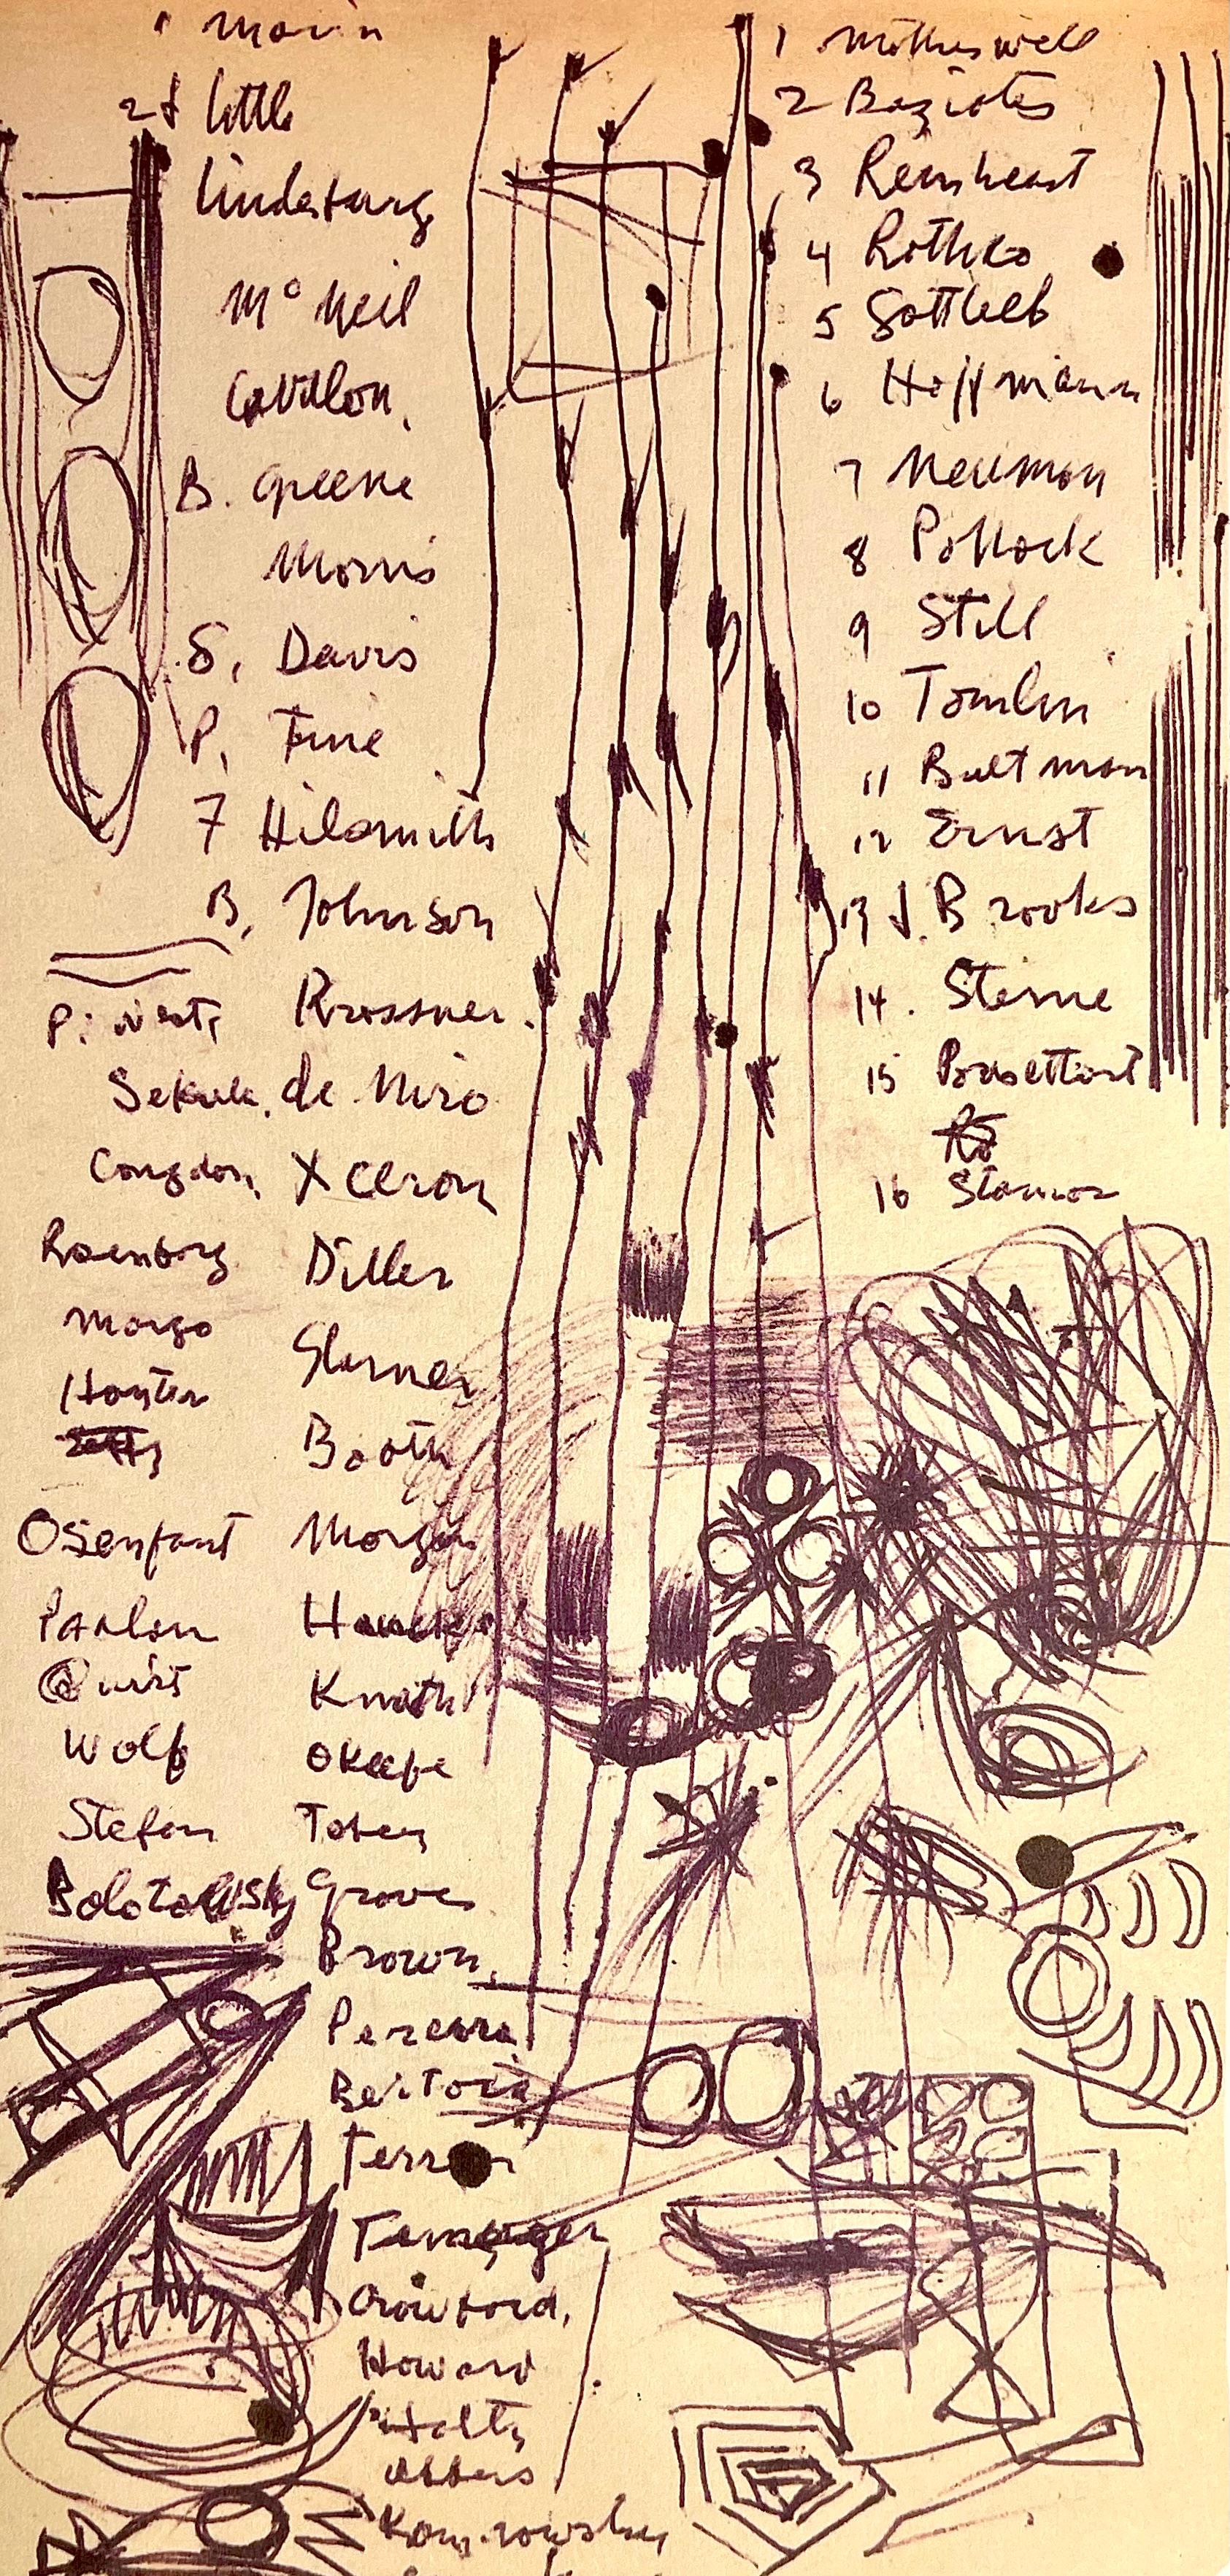 1 Marin
2 J little
Lindeburg
Mc Neil
Cavallon,
B. Greene
Morris
S. Davis
P. Fine
7 Hilsmith
B. Johnson
Krassner.
Sekula. de Niro
Congdon, Xceron
Rosenborg Diller
Margo Slerner
Booth
Osenfant Morgan
Quirt Knath
Wolf Okeefe
Stefan Tobey
Bolotowsky Groves
Brown,
Pereira
Bertoia
Terr
Crawford,
Howard
Holty
Albers
Kamrowsky
1 Motherwell
2 Baziotes
3 Reinheart
4 Rothko
5 Gottlieb
6 Hoffmann
7 Newman
8 Pollock
9 Still
10 Tomlin
11 Bultman
12 Ernst
13 J. Brooks
14. Sterne
15 Pousettdart
16 Stamos